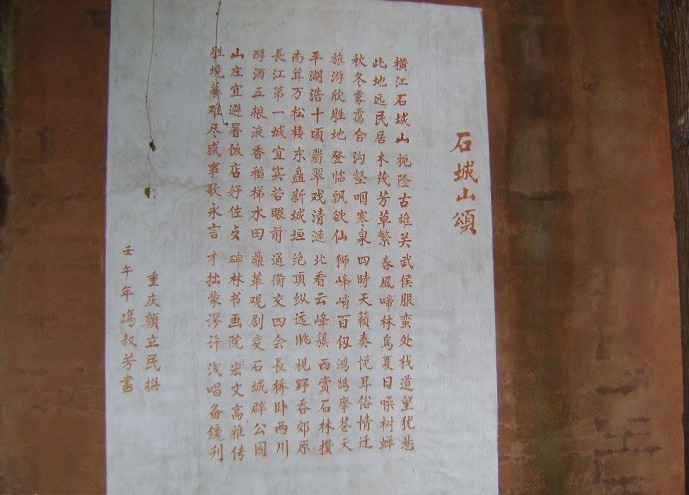 石城山頌
横江石城山 扼险古雄关 武侯服蛮处 栈道望犹悬
此地远民居 木茂芳草繁 春風啼林鳥 夏日噪树蝉
秋冬雾霭合 沟壑咽寒泉 四時天籁奏 悦耳俗情迁
旅游欣胜地 登临飘欲仙 狮峰峭百仞 鸿鹄摩苍天
平湖浩十顷 翡翠戏清涟 北看云峰簇 西赏石林攒
南耸万松楼 东矗新城垣 绝顶纵远眺 视野吞郊原
長江第一城 宜宾岩眼前 通衢交四会 長桥卧两川
醇酒五粮液 香稻梯水田 鼎革观剧变 石城辟公园
山庄宜避暑 饭店好住 碑林书画院 宏文高雅传
胜境难尽 感事歌永言 才拙蒙谬许 浅唱备镌刊
重庆顏立民撰
壬午年馮叔芳書